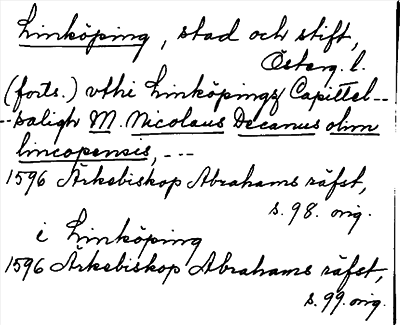 Linköping, stad och stift,
Österg. l.
(forts.) vthi Linköpings Capittel--
--saligh M. Nicolaus Decanus olim
lincopensis, ---
1596 Ärkebiskop Abrahams räfst,
s. 98. orig.
i Linköping
1596 Ärkebiskop Abrahams räfst,
s. 99. orig.